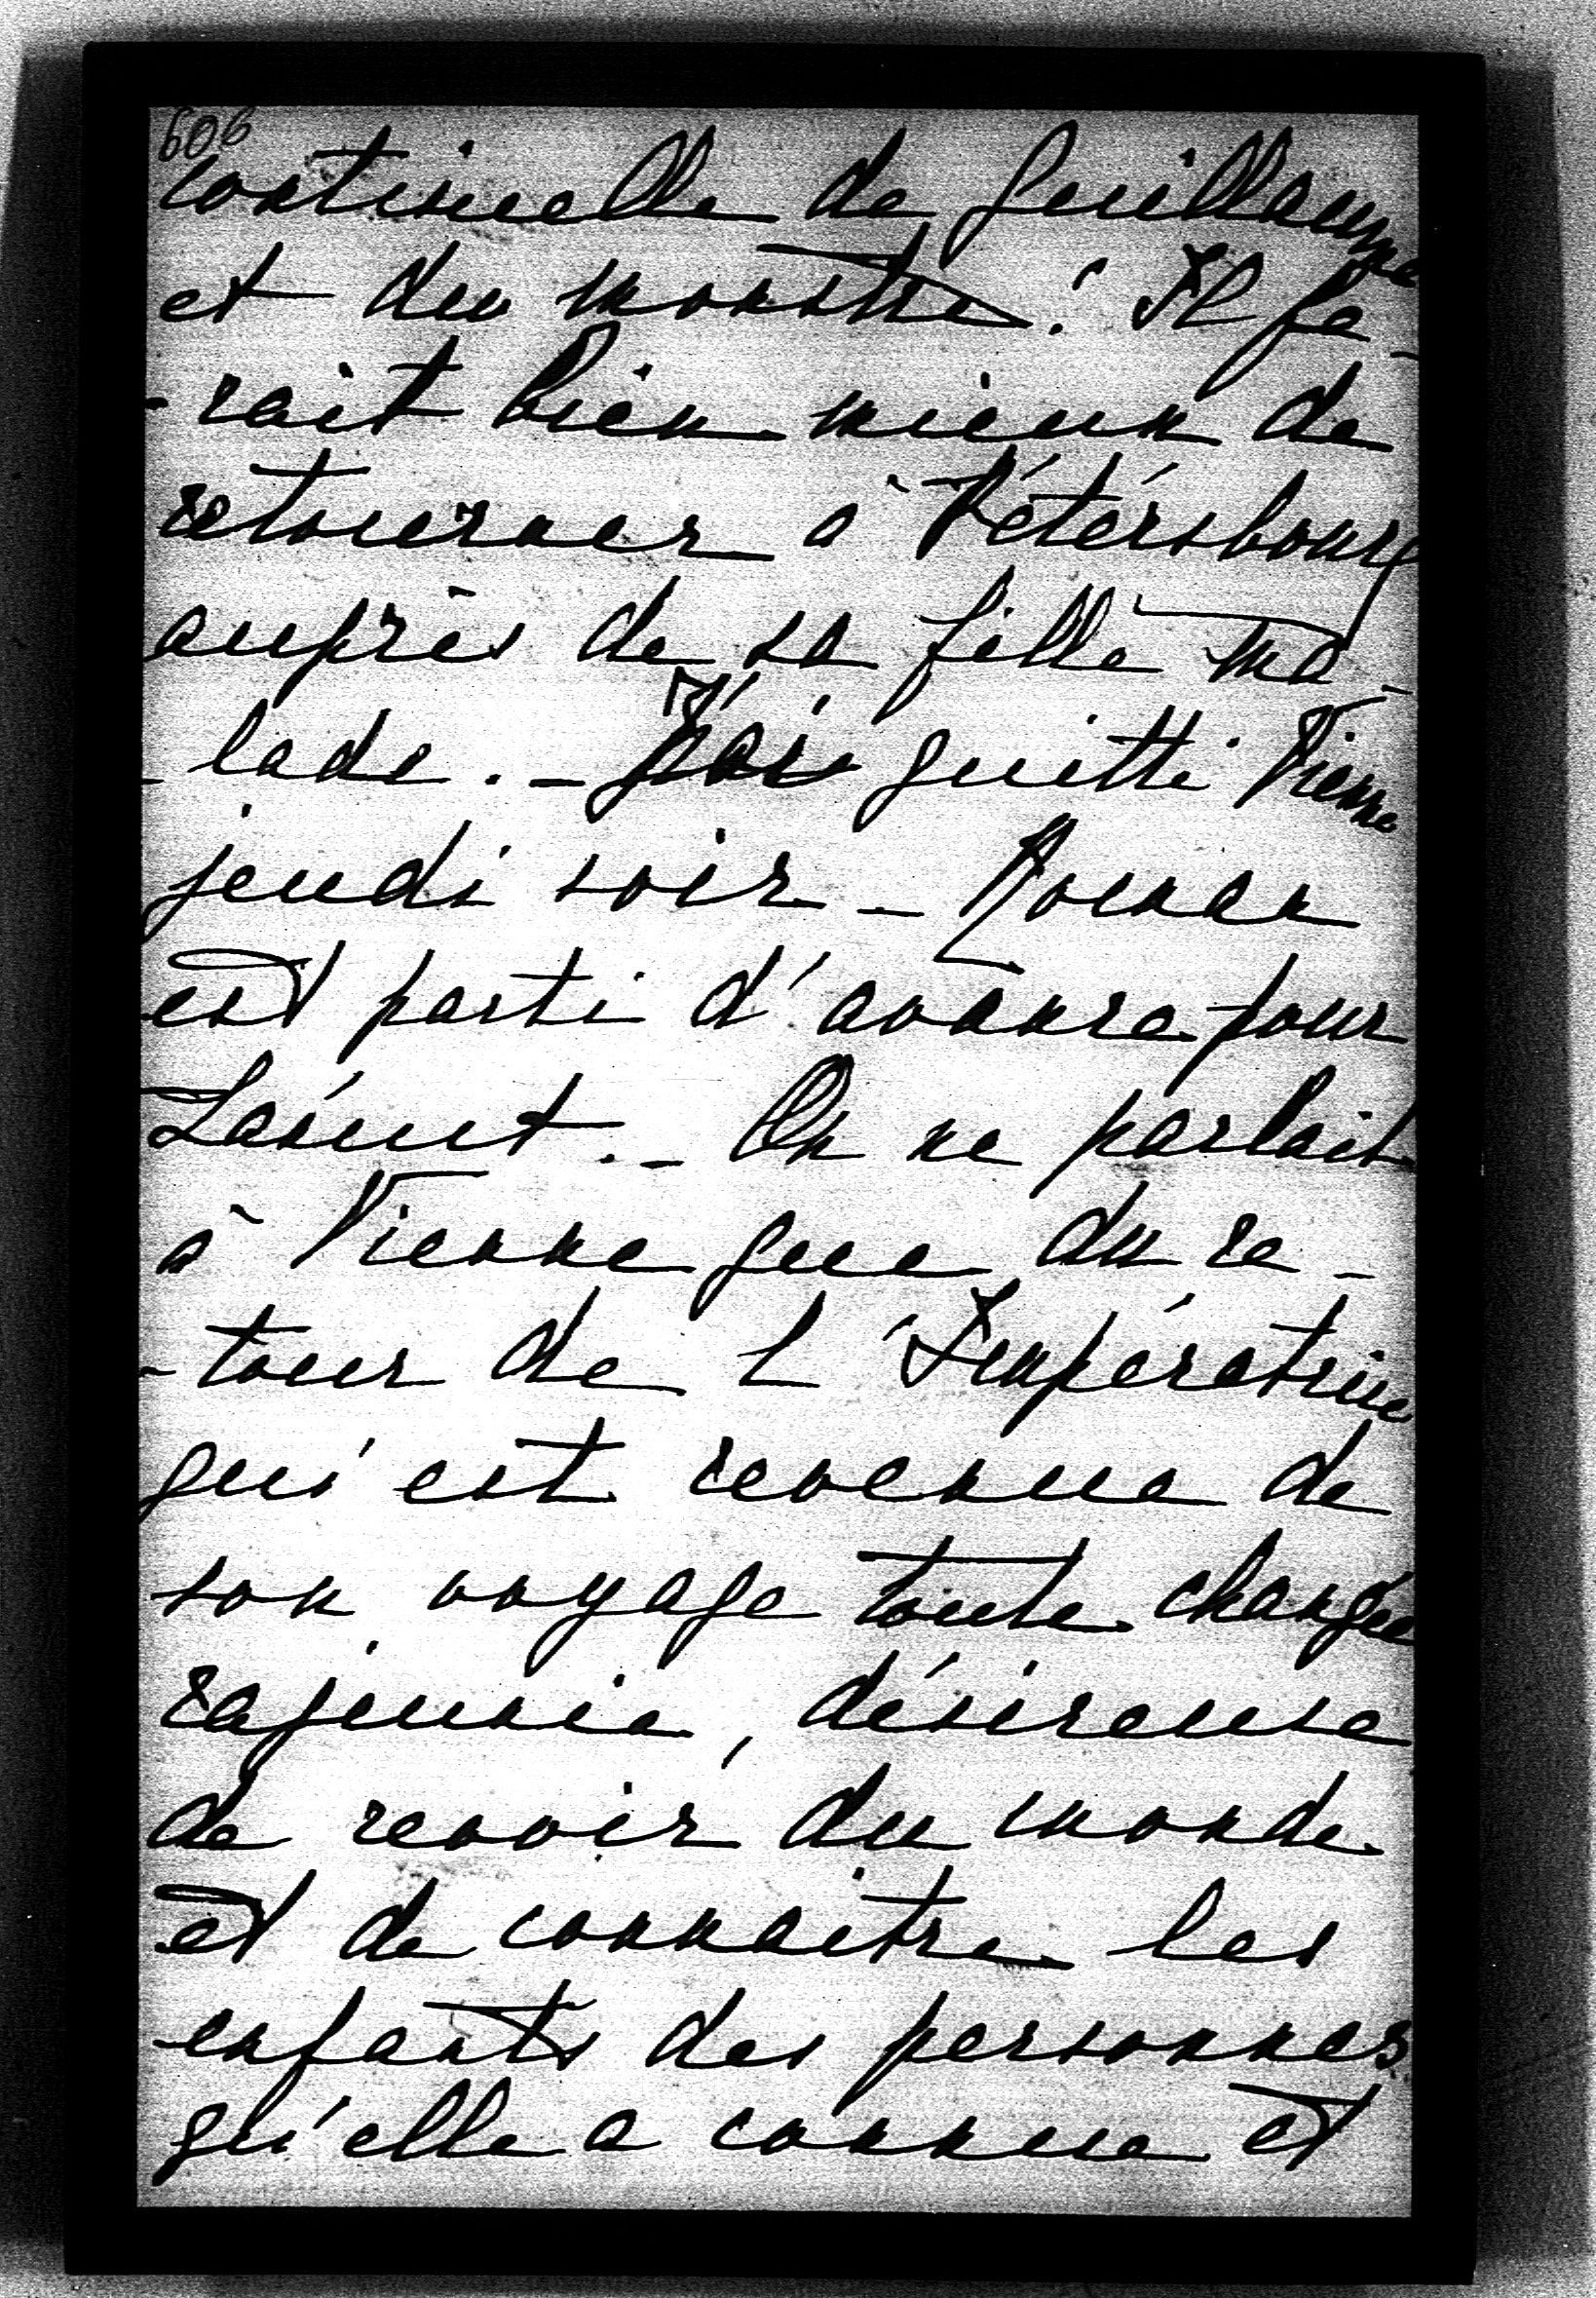 606
continuelle de Guillaume
et du monstre! Il fe-
-rait bien mieux de
retourner à Pétersbourg
auprès de sa fille ma-
-lade. - J'ai quitté Vienne
jeudi soir - Rouman
est parti d'avance pour
Lasint. - On ne parlait
à Vienne que du re-
-tour de l'Impératrice
qui est revenue de
son voyage toute changée
rajeunie, désireuse
de revoir du monde
et de connaitre les
enfants des personnes
qu'elle a connue et